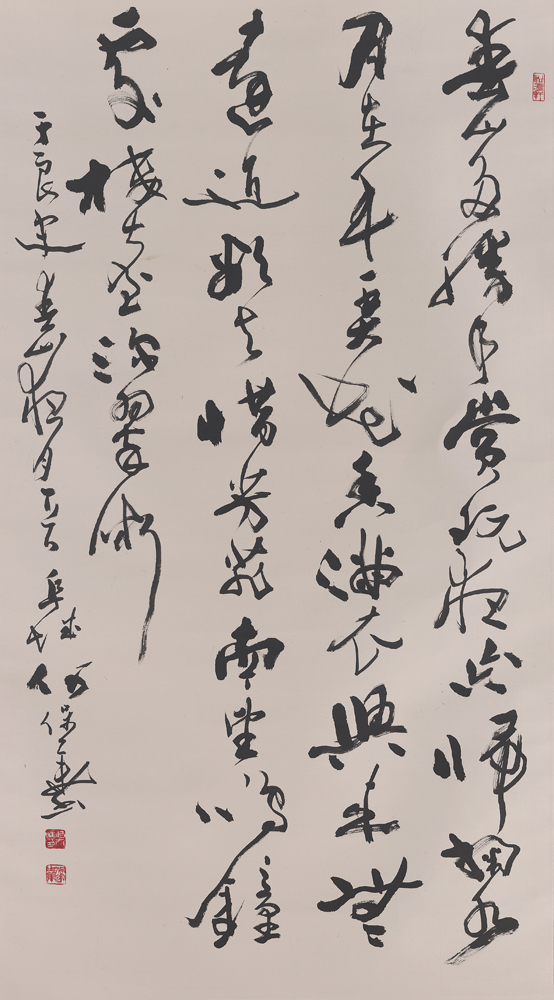 春山多勝事賞玩夜忘歸掬水
月在手弄花香滿衣興來無
遠近欲去惜芳菲南望鳴鐘
處樓臺深翠微
于良史春山夜月